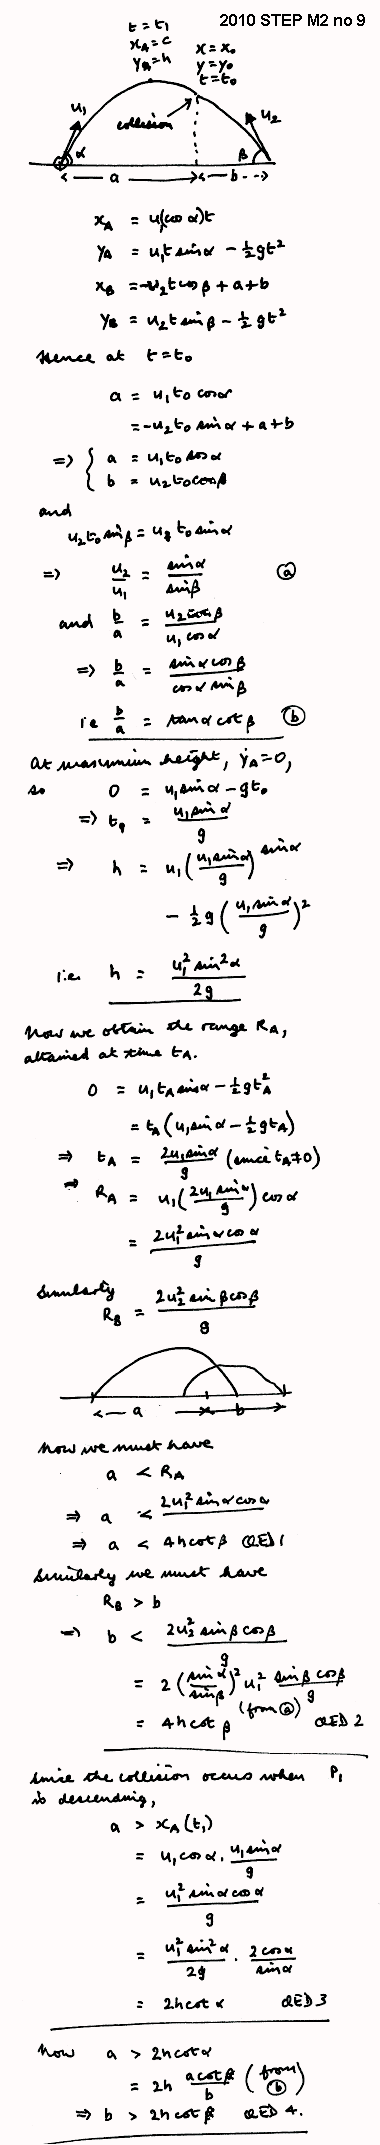 2010 STEP M2 no 9
t = t₁
x_A = c
y_A = h
x = x₀
y = y₀
t = t₀
u₁
collision
u₂
α
β
a
b
x_A = u₁(cos α)t
y_A = u₁t sin α − ½gt²
x_B = −u₂t cos β + a + b
y_B = u₂t sin β − ½gt²
Hence at t = t₀
a = u₁t₀ cos α
= −u₂t₀ sin α + a + b
⇒ { a = u₁t₀ cos α
b = u₂t₀ cos β
and
u₂t₀ sin β = u₁ t₀ sin α
⇒ u₂/u₁ = sin α/sin β ⓐ
and b/a = u₂ cos β/u₁ cos α
⇒ b/a = sin α cos β/cos α sin β
i.e. b/a = tan α cot β ⓑ
At maximum height, ẏ_A = 0,
so 0 = u₁ sin α − gt₀
⇒ t₁ = u₁ sin α/g
⇒ h = u₁(u₁ sin α/g) sin α
− ½g(u₁ sin α/g)²
i.e. h = u₁² sin² α/2g
Now we obtain the range R_A,
attained at time t_A.
0 = u₁t_A sin α − ½gt_A²
= t_A(u₁ sin α − ½gt_A)
⇒ t_A = 2u₁ sin α/g (since t_A ≠ 0)
⇒ R_A = u₁(2u₁ sin α/g) cos α
= 2u₁² sin α cos α/g
Similarly
R_B = 2u₂² sin β cos β/g
a
b
Now we must have
a < R_A
⇒ a < 2u₁² sin α cos α
⇒ a < 4h cot β QED 1
Similarly we must have
R_B > b
⇒ b < 2u₂² sin β cos β/g
= 2 (sin α/sin β)² u₁² sin β cos β/g
= 4h cot β (from ⓐ) QED 2
Since the collision occurs when P₁
is descending,
a > x_A(t₁)
= u₁ cos α . u₁ sin α/g
= u₁² sin α cos α/g
= u₁² sin² α/2g . 2 cos α/sin α
= 2h cot α QED 3
Now a > 2h cot α
= 2h a cot β/b (from ⓑ)
⇒ b > 2h cot β QED 4.